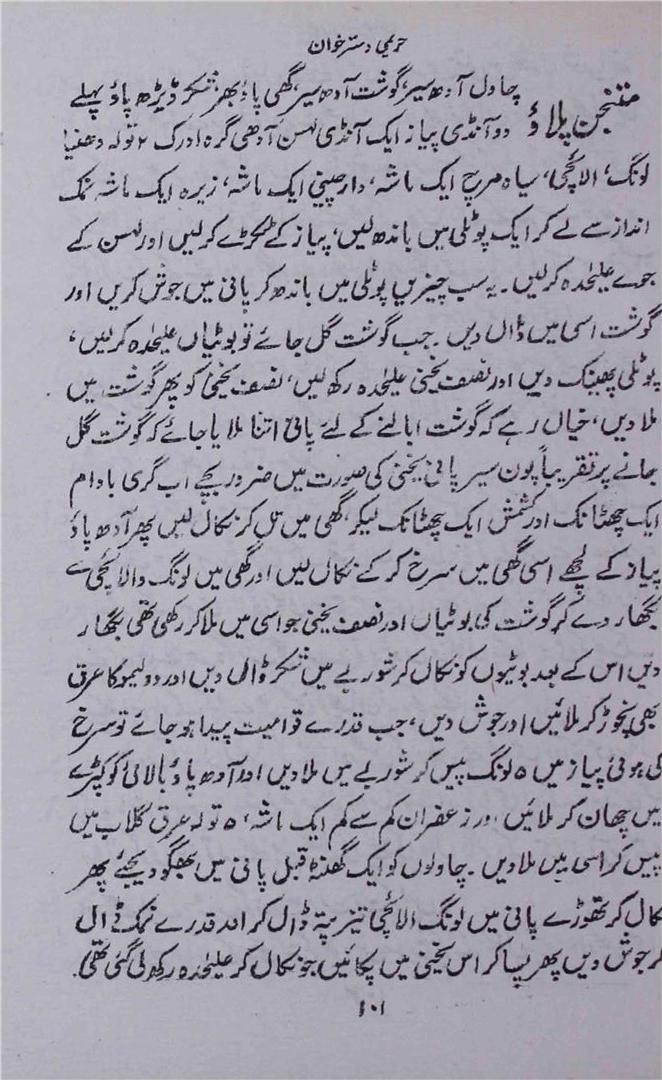 حریمی دسترخوان
متنجن پلاؤ
چاول آدھ سیر، گوشت آدھ سیر، گھی پاؤ بھر، شکر ڈیڑھ پاؤ پہلے
دو آنڈی پیاز ایک آنڈی لہسن آدھی گرہ ادرک ۲ تولہ دھنیا
لونگ، الائچی، سیاہ مرچ ایک ماشہ، دارچینی ایک ماشہ، زیرہ ایک ماشہ نمک
انداز سے لے کر ایک پوٹلی میں باندھ لیں، پیاز کے ٹکڑے کر لیں اور لہسن کے
جوے علیحدہ کر لیں۔ یہ سب چیزیں پوٹلی میں باندھ کر پانی میں جوش کریں اور
گوشت اسی میں ڈال دیں۔ جب گوشت گل جائے تو بوٹیاں علیحدہ کر لیں،
پوٹلی پھینک دیں اور نصف یخنی علیحدہ رکھ لیں، نصف یخنی کو پھر گوشت میں
ملا دیں، خیال رہے کہ گوشت ابالنے کے لئے پانی اتنا ملایا جائے کہ گوشت گل
جانے پر تقریباً پون سیر پانی یخنی کی صورت میں ضرور بچے اب گری بادام
ایک چھٹانک اور کشمش ایک چھٹانک لیکر، گھی میں تل کر نکال لیں پھر آدھ پاؤ
پیاز کے لچھے اسی گھی میں سرخ کر کے نکال لیں اور گھی میں لونگ و الائچی سے
بگھار دے کر گوشت کی بوٹیاں اور نصف یخنی جو اسی میں ملا کر رکھی تھی بگھار
دیں اس کے بعد بوٹیوں کو نکال کر شوربے میں شکر ڈال دیں اور دو لیمو کا عرق
بھی نچوڑ کر ملائیں اور جوش دیں، جب قدرے قوامیت پیدا ہو جائے تو سرخ
کی ہوئی پیاز میں ۵ لونگ پیس کر شوربے میں ملا دیں اور آدھ پاؤ بالائی کو کپڑے
میں چھان کر ملائیں اور زعفران کم سے کم ایک ماشہ، ۵ تولہ عرق گلاب میں
پیس کر اسی میں ملا دیں۔ چاولوں کو ایک گھنٹہ قبل پانی میں بھگو دیجئے پھر
نکال کر تھوڑے پانی میں لونگ الائچی تیزپتہ ڈال کر اور قدرے نمک ڈال
کر جوش دیں پھر پسا کر اس یخنی میں پکائیں جو نکال کر علیحدہ رکھ لی گئی تھی۔
۱۰۱